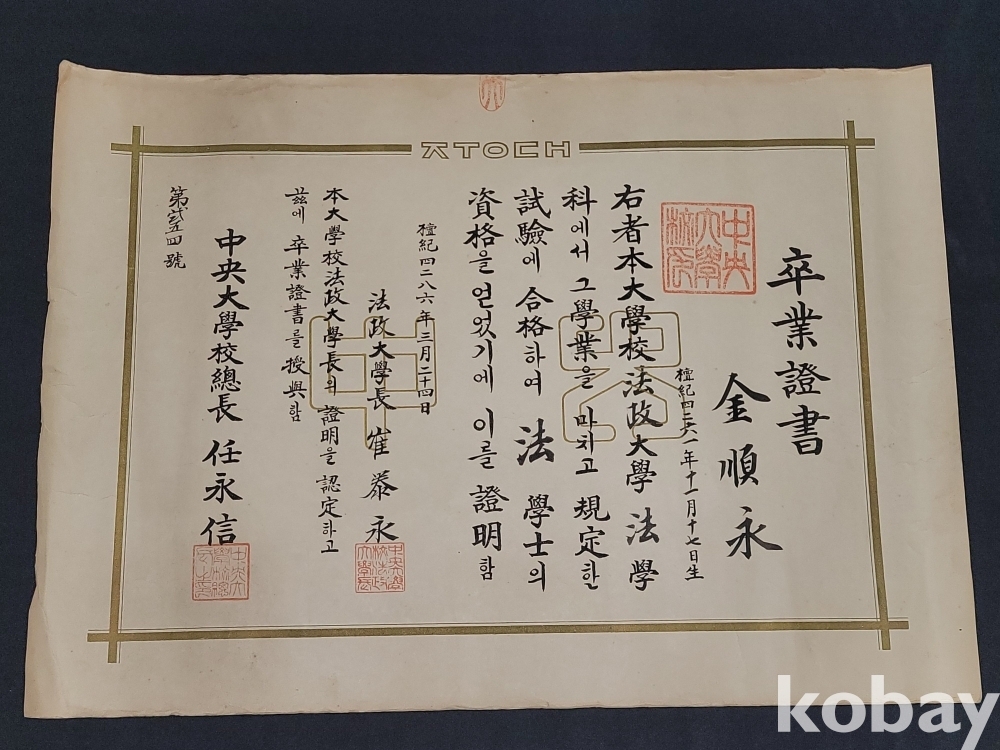 卒業證書
金順永
檀紀四二六一年十一月十七日生
右者本大學校法政大學法學
科에서 그 學業을 마치고 規定한
試驗에 合格하여 法學士의
資格을 얻었기에 이를 證明함
檀紀四二八六年三月二十四日
法政大學長 崔泰永
本大學校法政大學長의 證明을 認定하고
玆에 卒業證書를 授與함
中央大學校總長 任永信
第 五四號
中央大學校印
kobay